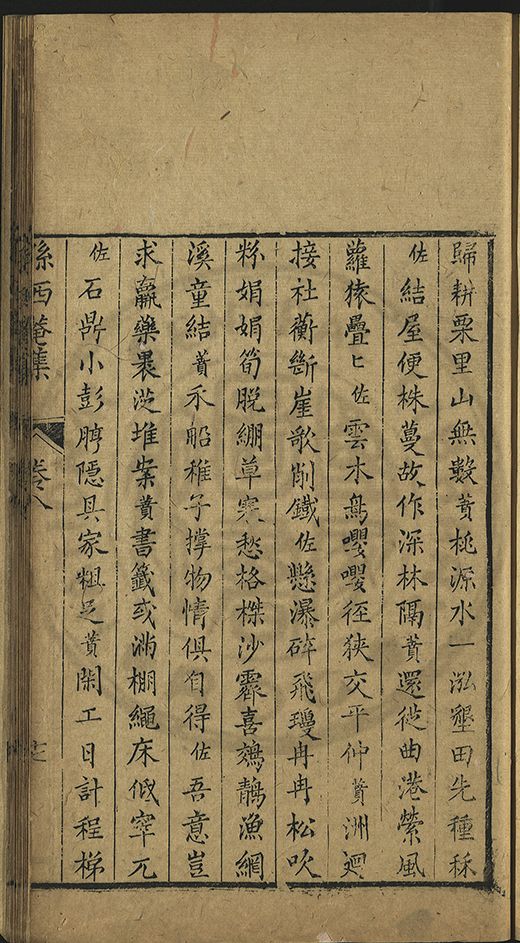 歸耕栗里山無數蕡桃源水一泓墾田先種秫
佐結屋便株蔓故作深林隔蕡還從曲港縈風
蘿猿疊匕佐雲木鳥嚶嚶徑狹交平仲蕡洲廻
接社蘅斷崖歌削鐵佐懸瀑碎飛瓊冉冉松吹
粉娟娟筍脫綳草寒愁格桀沙霽喜鵁鶄漁網
溪童結蕡禾船稚子撑物情俱自得佐吾意豈
求羸藥裹從堆案蕡書籤或滿棚繩床低窣兀
佐石鼎小彭脝隱具家粗足蕡閑工日計程梯
孫西菴集
卷八